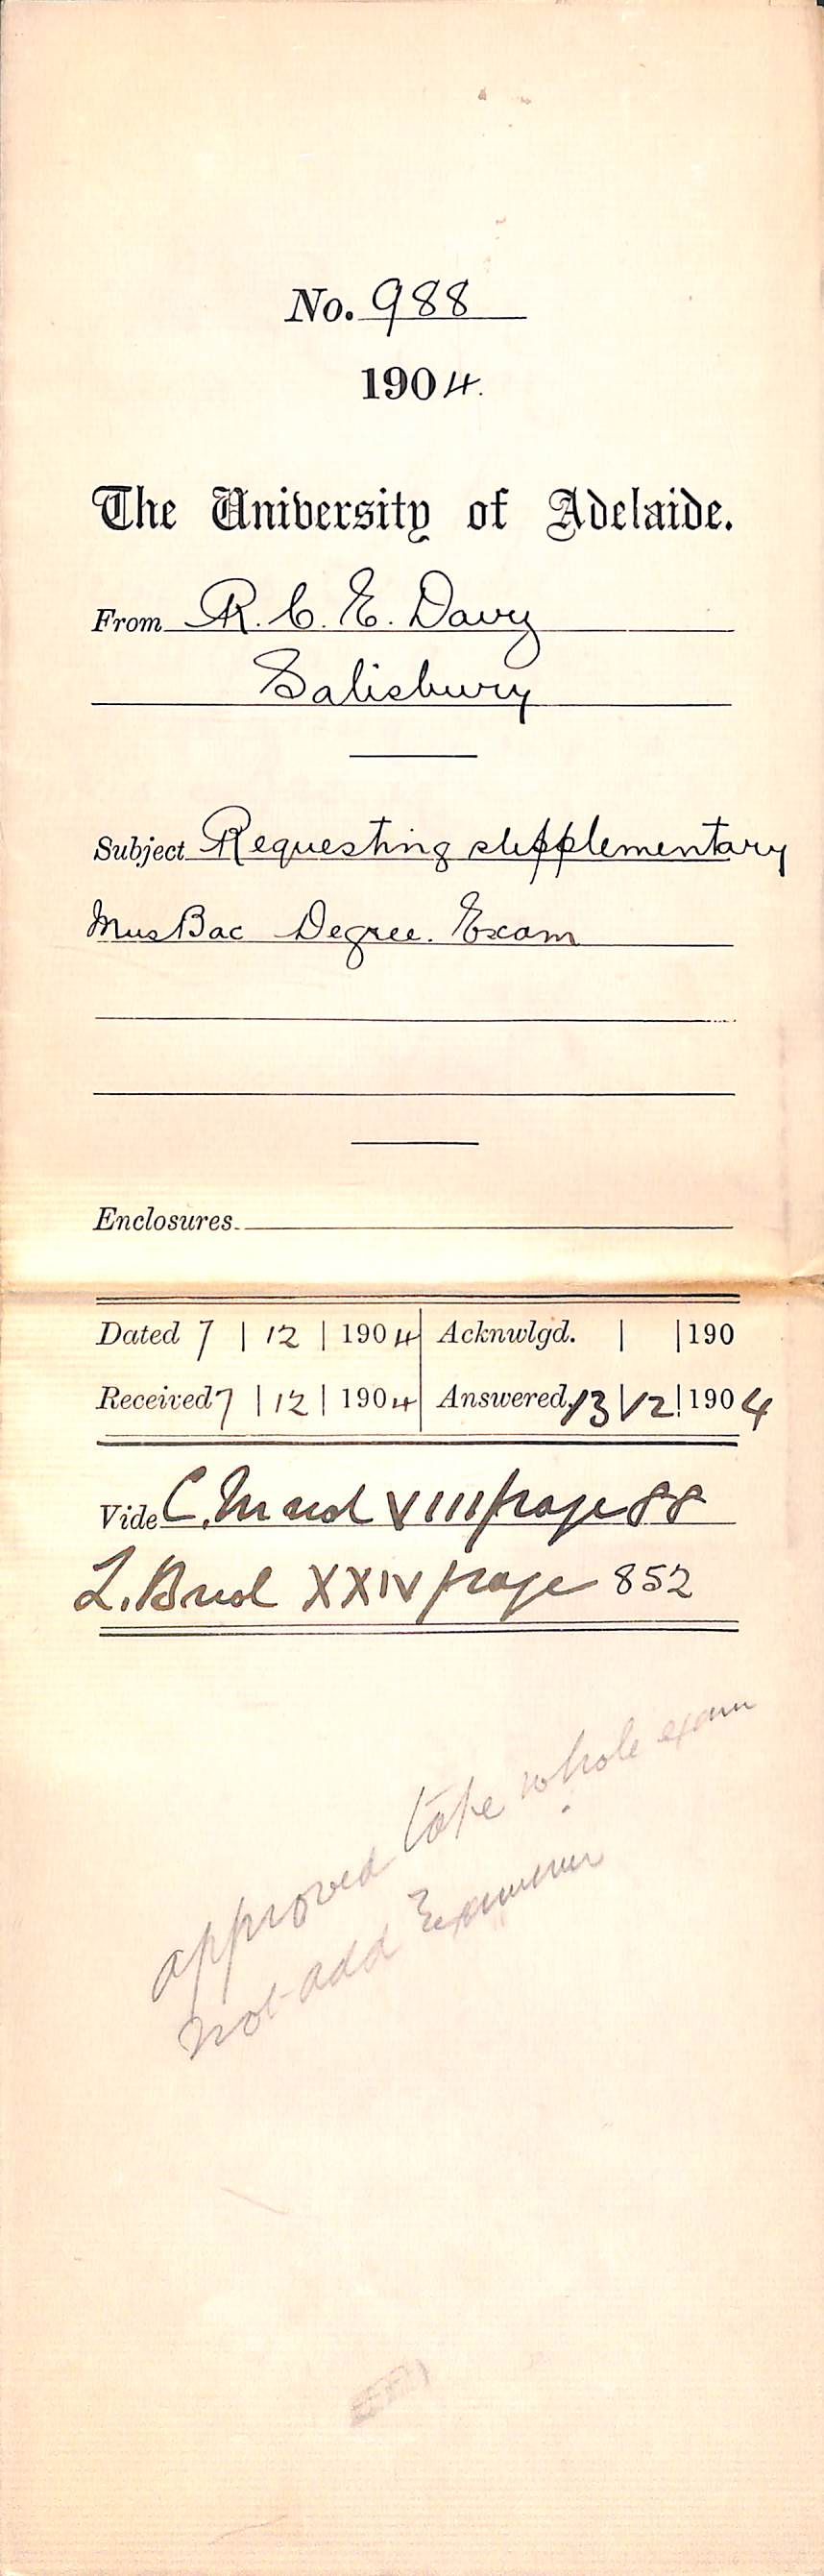 No. 988
1904.
The University of Adelaide.
From R. C. E. Davy
Salisbury
Subject Requesting supplementary
Mus Bac Degree. Exam
Enclosures
Dated 7 | 12 | 1904 Acknwlgd. | | 190
Received 7 | 12 | 1904 Answered 13 | 12 | 1904
Vide C. M vol VIII page 88
L. B vol XXIV page 852
approved take whole exam
not add